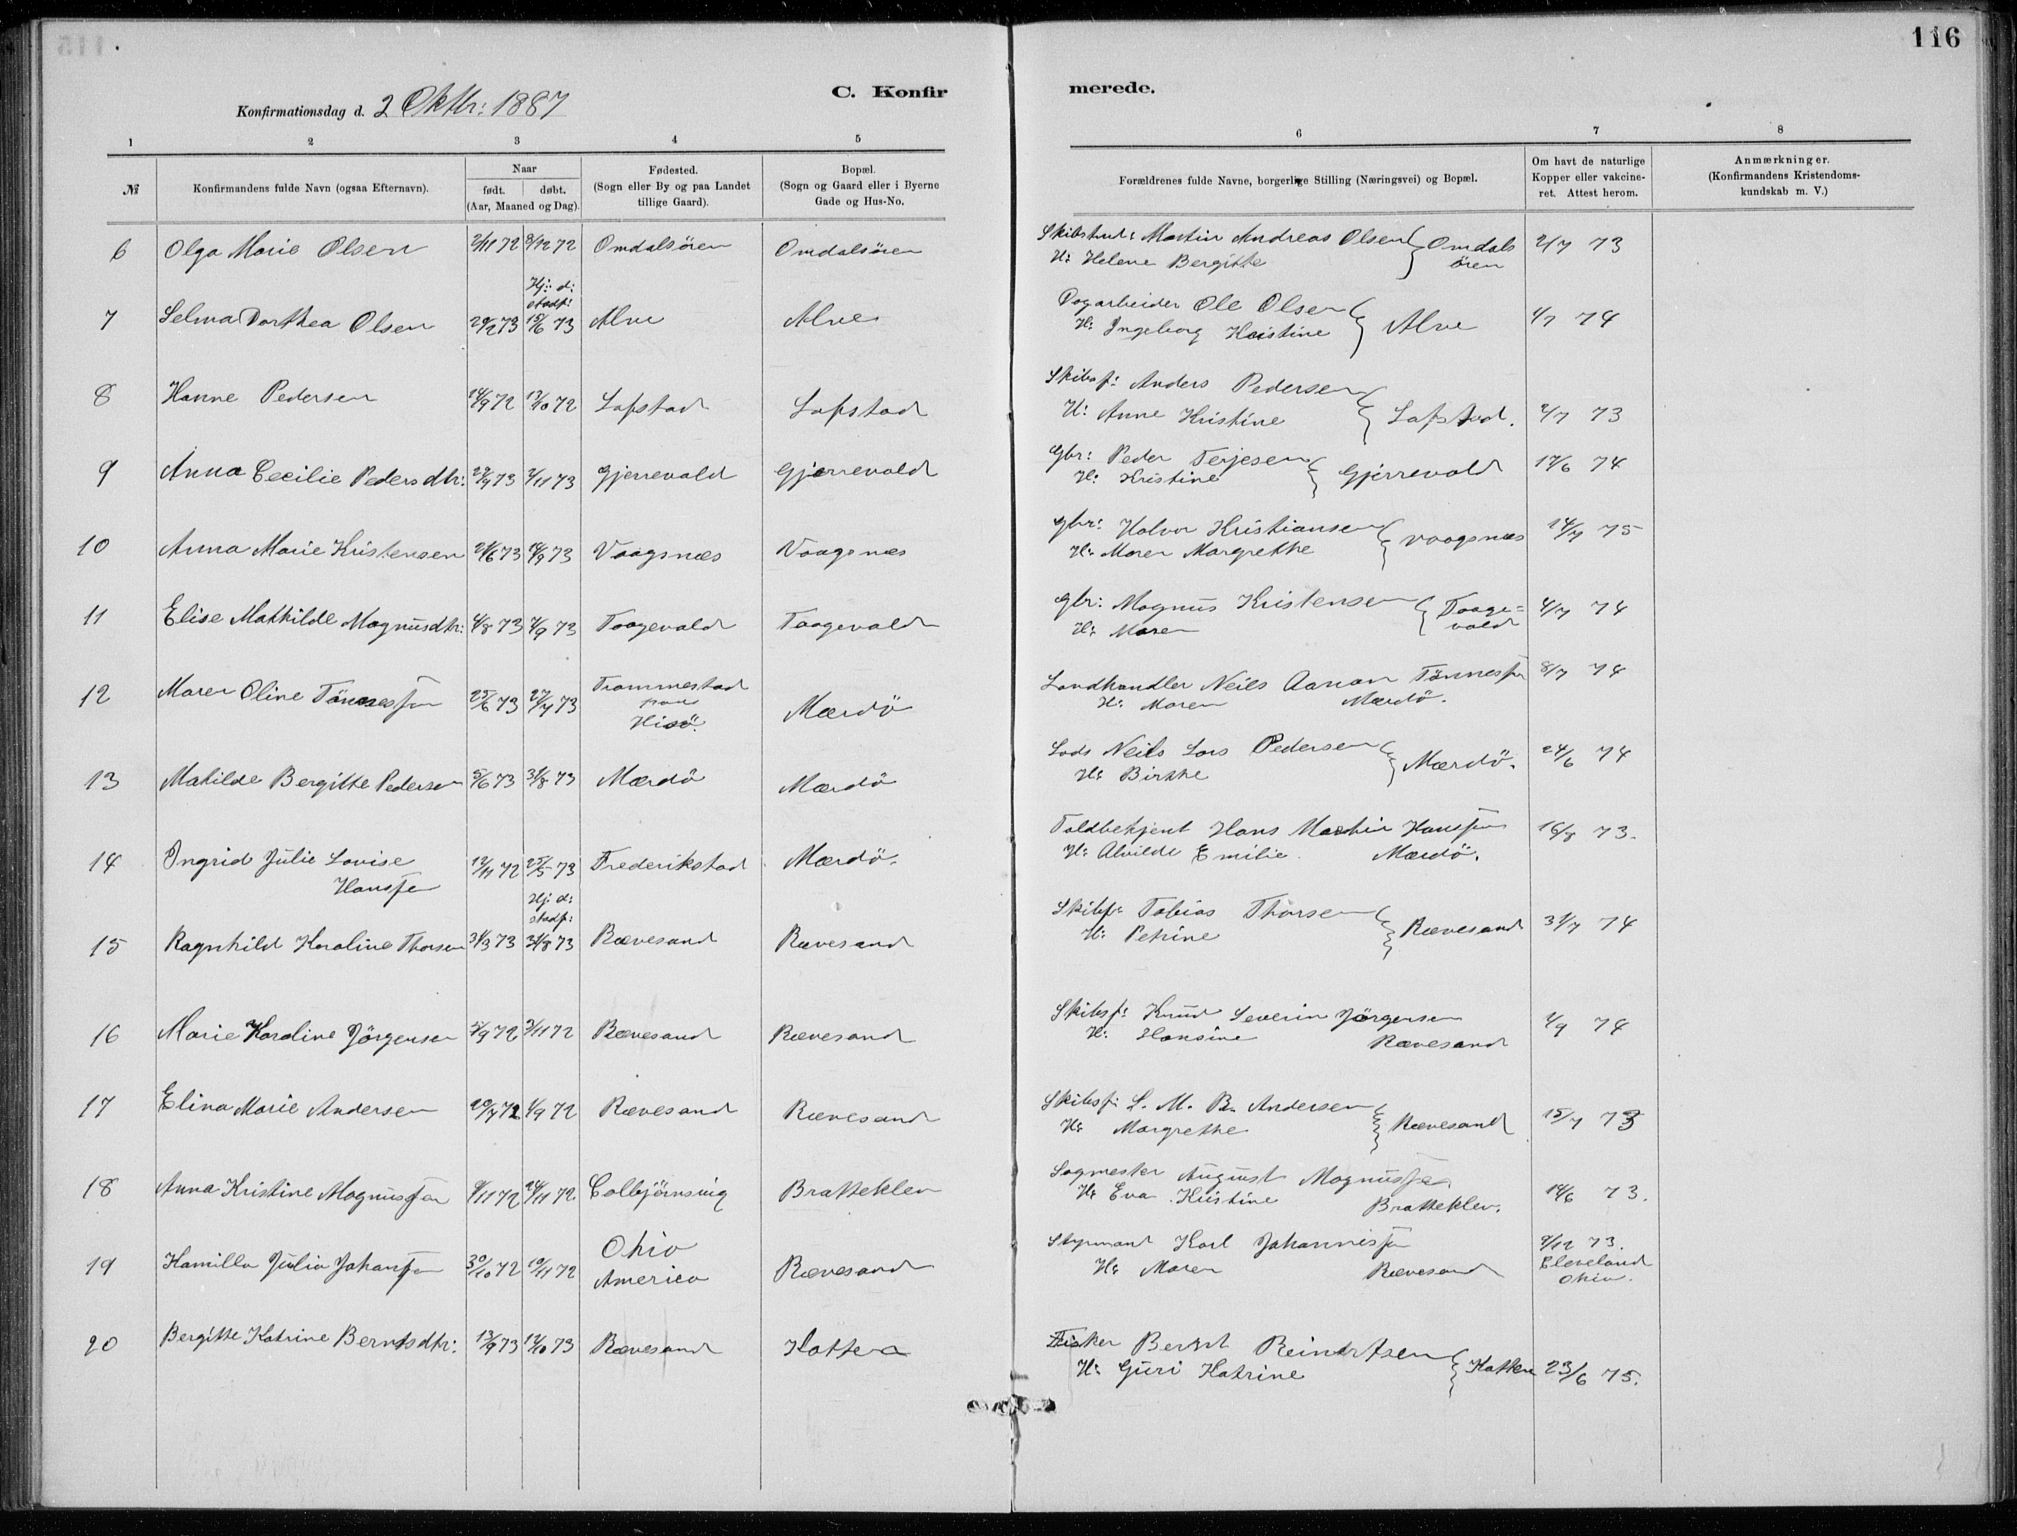 116
C. Konfirmerede.
Konfirmationsdag d. 2 Oktbr: 1887
1 2 3 4 5 6 7 8
№
Konfirmandens fulde Navn (ogsaa Efternavn).
Naar
født. døbt.
(Aar, Maaned og Dag).
Fødested.
(Sogn eller By og paa Landet
tillige Gaard).
Bopæl.
(Sogn og Gaard eller i Byerne
Gade og Hus-No.
Forældrenes fulde Navne, borgerlige Stilling (Næringsvei) og Bopæl.
Om havt de naturlige
Kopper eller vakcine-
ret. Attest herom.
Anmærkninger.
(Konfirmandens Kristendoms-
kundskab m. V.)
6 Olga Marie Olsen 2/11 72 8/12 72 Omdalsören Omdalsören Martin Andreas Olsen Omdals 2/7 73
H: Helene Bergitte ören
Hj: d:
stadf:
7 Selma Dorthea Olsen 73 15/6 73 Alve Alve Dagarbeider Ole Olsen Alve 4/7 74
H: Ingeborg Kristine
8 Hanne Pedersen 14/9 72 13/10 72 Lofstad Lofstad Skibsf: Anders Pedersen
H: Anne Kristine Lofstad. 2/7 73
9 Anna Cecilie Pedersdtr: 73 2/11 73 Gjerrevald Gjerrevald Gbr: Peder Terjesen Gjerrevald 17/6 74
H: Kristine
10 Anna Marie Kristensen 73 73 Vaagsnæs Vaagsnæs gbr: Halvor Kristiansen Vaagsnæs 14/7 75
H: Maren Margrethe
11 Elise Mathilde Magnusdtr: 4/8 73 73 Taagevald Taagevald gbr: Magnus Kristensen Taage= 4/7 74
H: Maren vald
12 Maren Oline Tönnesen 25/6 73 27/7 73 Trommestad Mærdö Landhandler Neils Aanon Tönnesen 8/7 74
paa
Hisö. H: Maren Mærdö.
13 Matilde Bergitte Pedersen 5/6 73 31/8 73 Mærdö Mærdö Lods Neils Lars Pedersen Mærdö. 24/6 74
H: Birthe
14 Ingrid Julie Lovise 12/11 72 25/5 73 Frederikstad Mærdö. Toldbetjent Hans Martin Hanssen 16/8 73.
Hanssen H: Alvilde Emilie Mærdö.
Hj: d:
stadf:
15 Ragnhild Karoline Thorsen 31/3 73 31/8 73 Rævesand Rævesand Skibsf: Tobias Thorsen Rævesand 31/7 74
H: Petrine
16 Marie Karoline Jörgensen 5/9 72 3/11 72 Rævesand Rævesand Skibsf: Knud Severin Jörgensen 2/9 74
H: Hansine Rævesand
17 Elina Marie Andersen 20/7 72 1/9 72 Rævesand Rævesand Skibsf: L. M. B. Andersen Rævesand 15/7 73
H: Margrethe
18 Anna Kristine Magnussen 72 24/11 72 Colbjörnsvig Bratteklev Sagmester August Magnussen
H: Eva Kristine Bratteklev. 14/6 73.
19 Kamilla Julia Johansen 30/10 72 10/11 72 Ohio Rævesand Styrmand Karl Johannisen 9/12 73.
America H: Maren Rævesand Cleveland
Ohio.
20 Bergitte Katrine Berntsdtr: 13/9 73 12/10 73 Rævesand Katten Fisker Bernt Reinertsen
H: Guri Katrine Katten 23/6 75.